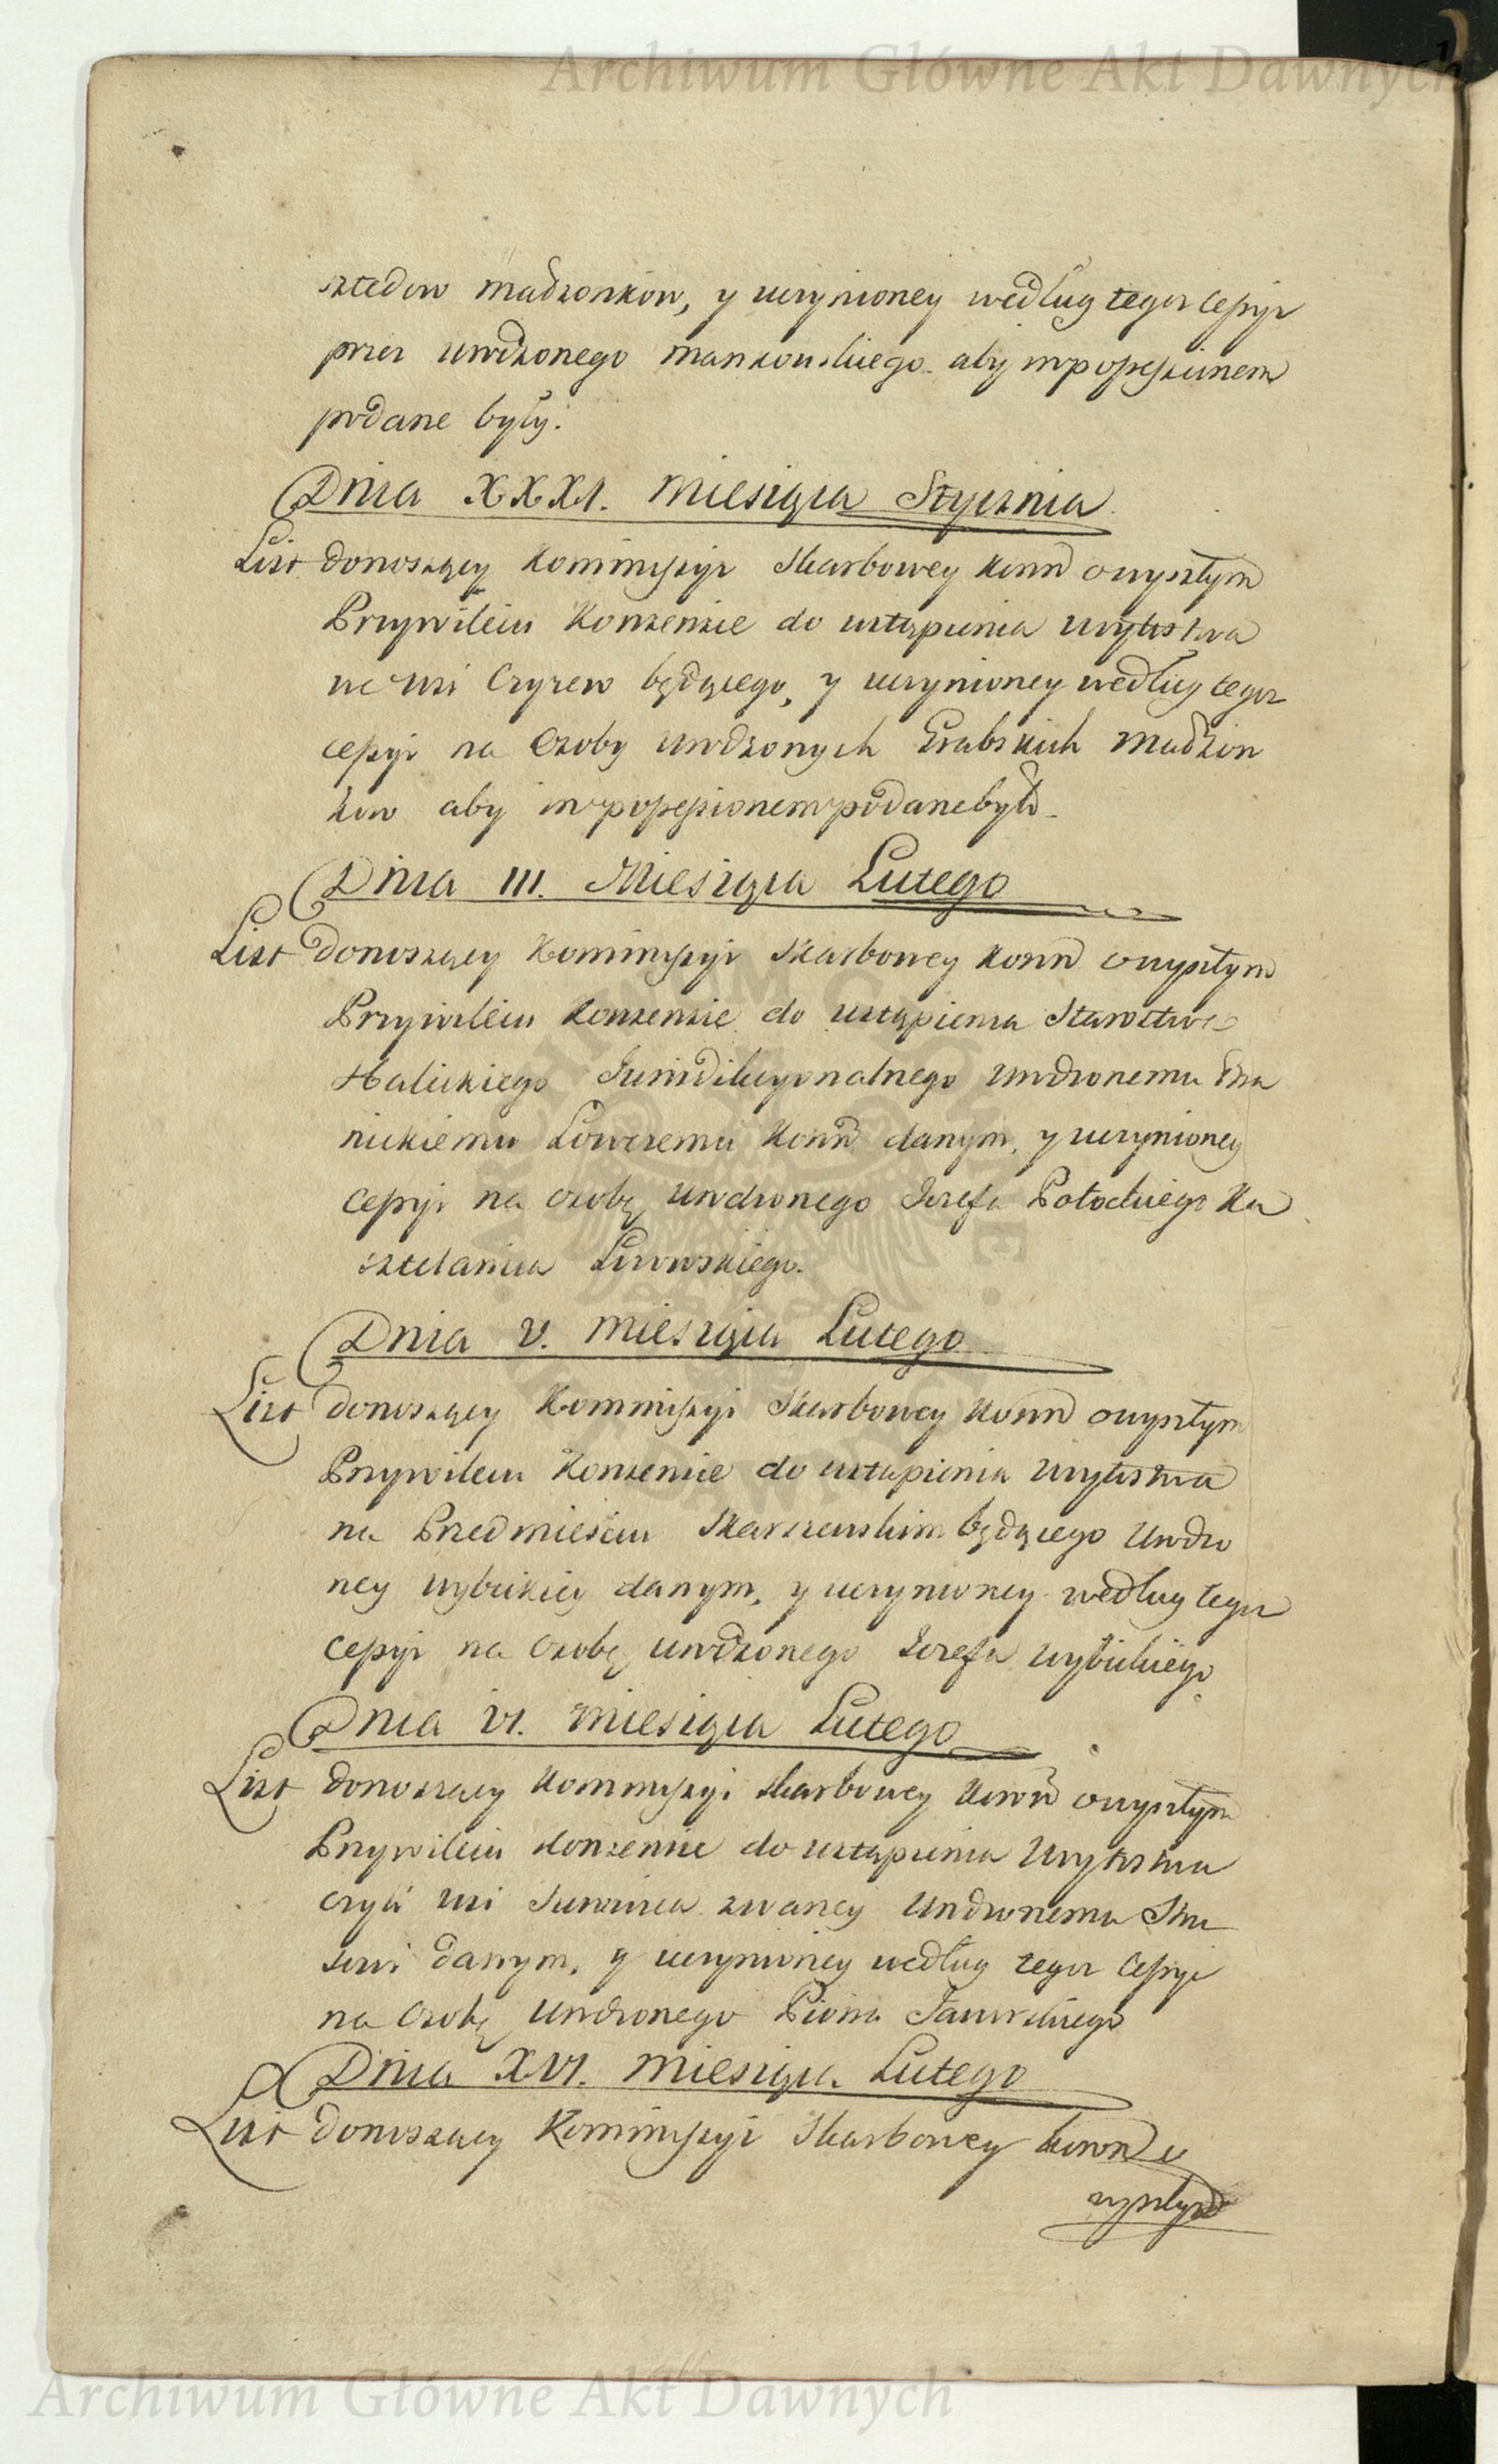 Archiwum Główne Akt Dawnych
sztedow Małżonkow, y uczynioney według tegoż cessyi
przez Urodzonego Mankowskiego aby in possessionem
podane były.
Dnia XXXI. Miesiąca Stycznia
List donoszący Kommissyi Skarbowey Koron o wyszłym
Przywileiu Konsensie do ustąpienia Wojtostwa
we Wsi Czyżew będącego, y uczynioney według tegoż
cessyi na Osoby Urodzonych Grabskich Małżon
kow aby in possessionem podane było
Dnia III. Miesiąca Lutego
List donoszący Kommissyi Skarbowey Koron o wyszłym
Przywileiu Konsensie do ustąpienia Starostwa
Halickiego Jurisdikcyonalnego Urodzonemu Bra
nickiemu Łowczemu Koron danym, y uczynioney
Cessyi na Osobę Urodzonego Jozefa Potockiego Ka
sztelanica Lwowskiego.
Dnia V. Miesiąca Lutego
List donoszący Kommissyi Skarbowey Koron o wyszłym
Przywileiu Konsensie do ustąpienia Woytostwa
na Przedmieściu Skarszewskim będącego Urodzo
ney Wybickiey danym, y uczynioney według tegoż
Cessyi na Osobę Urodzonego Jozefa Wybickiego
Dnia VI. Miesiąca Lutego
List donoszący Kommissyi Skarbowey Koron o wyszłym
Przywileiu Konsensie do ustąpienia Woytostwa
czyli Wsi zwaney Urodzonemu
danym, y uczynioney według tegoż Cessyi
na Osobę Urodzonego Piotra
Dnia XVI. Miesiąca Lutego
List donoszący Kommissyi Skarbowey Koron o
wyszłym
Archiwum Główne Akt Dawnych